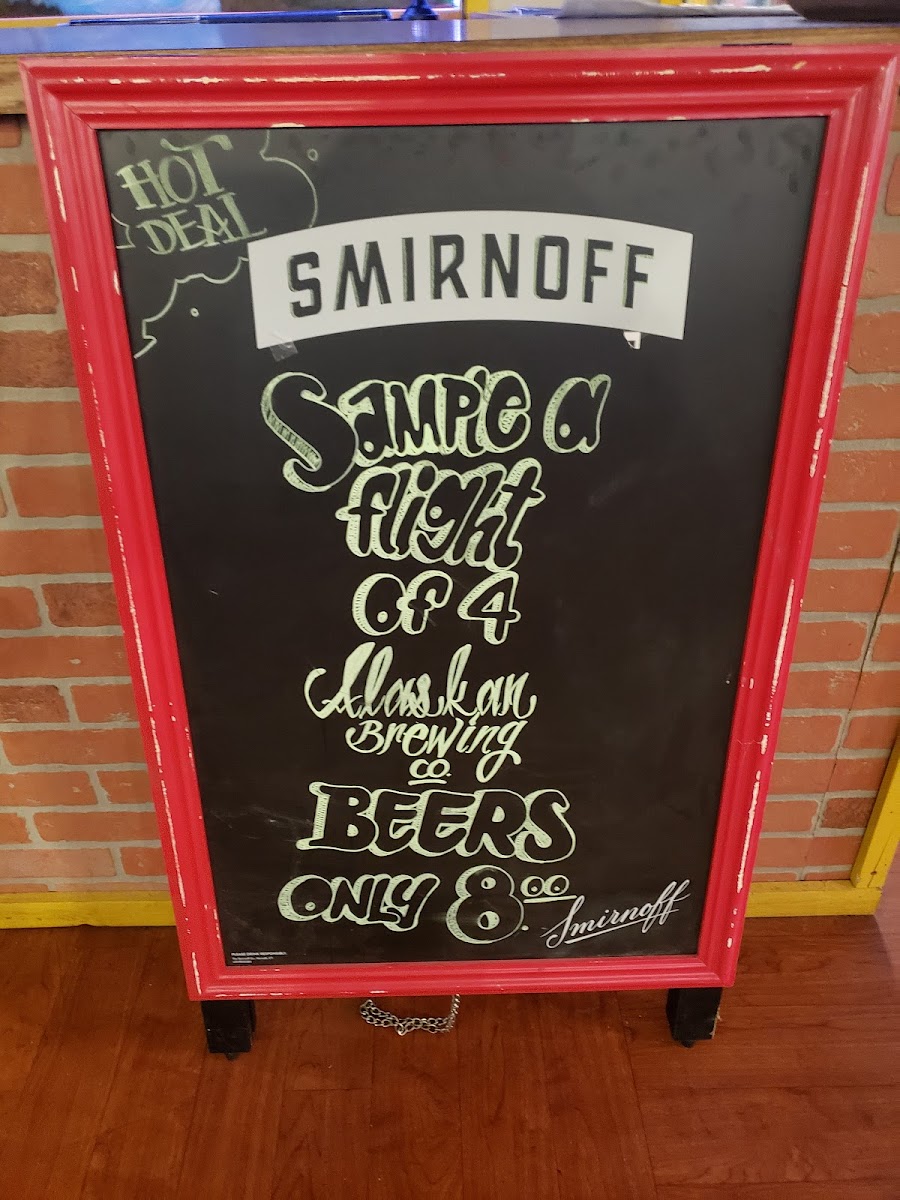 HOT
DEAL
SMIRNOFF
Sample a
flight
of 4
Alaskan
Brewing
CO.
BEERS
ONLY 8.00
Smirnoff
PLEASE DRINK RESPONSIBLY.